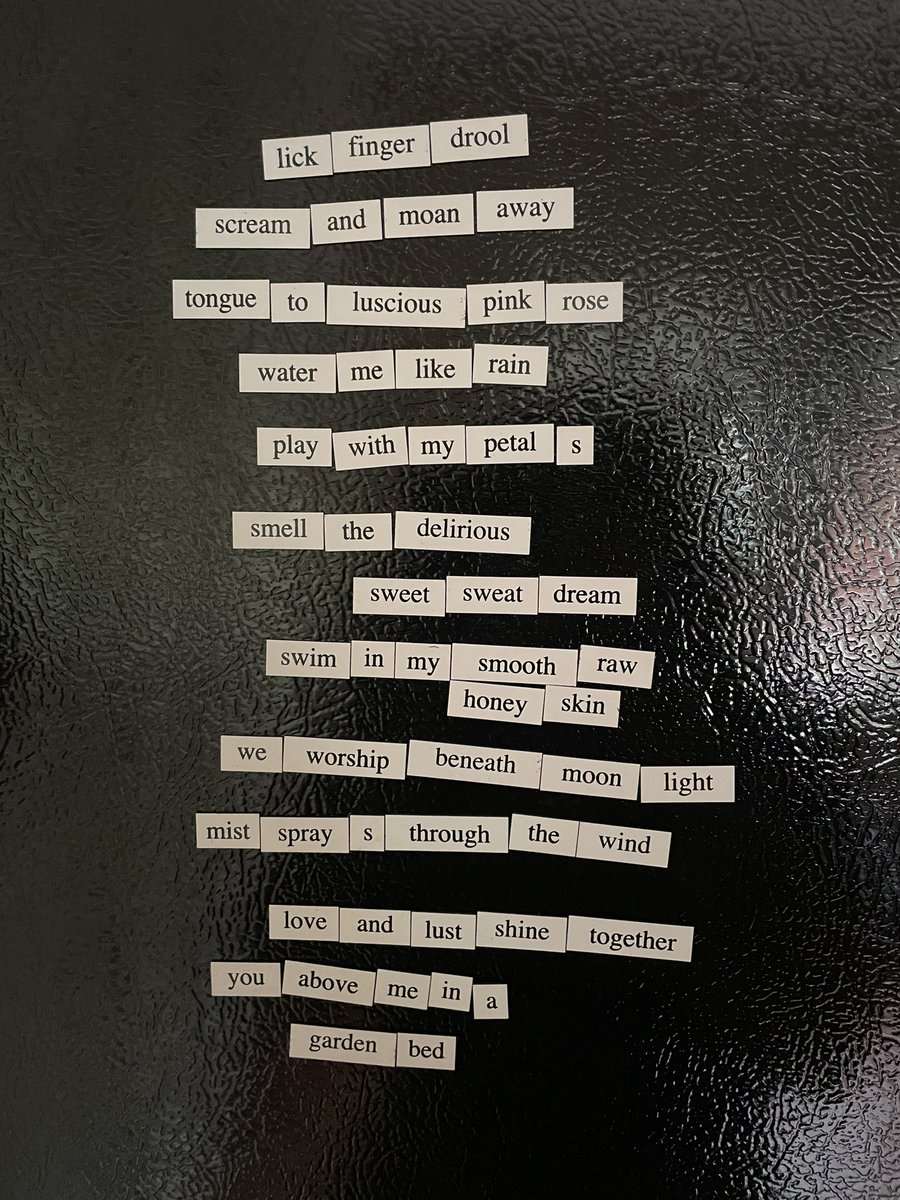 lick finger drool
scream and moan away
tongue to luscious pink rose
water me like rain
play with my petal s
smell the delirious
sweet sweat dream
swim in my smooth raw
honey skin
we worship beneath moon light
mist spray s through the wind
love and lust shine together
you above me in a
garden bed